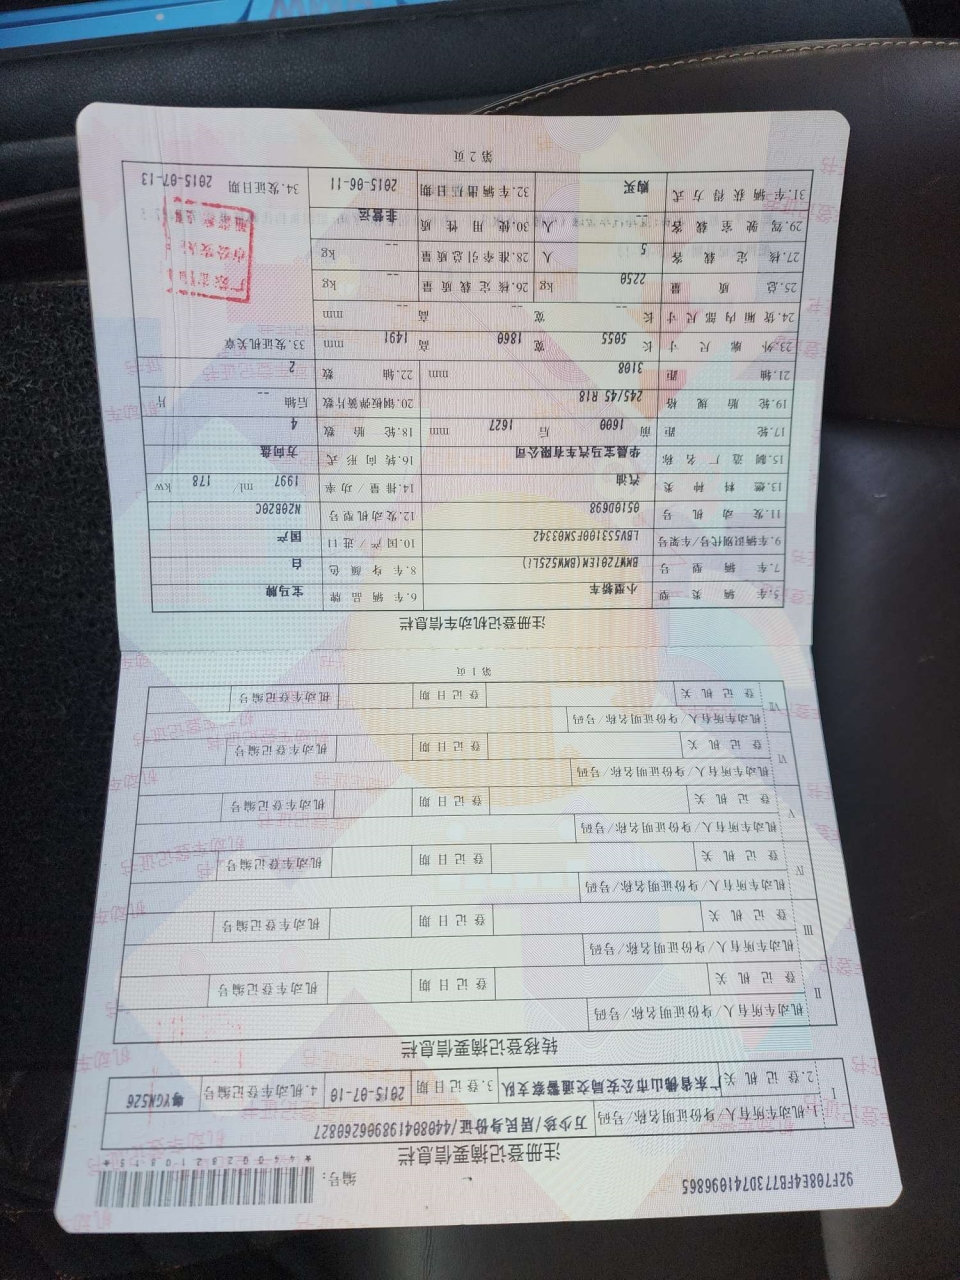 92F708E4FB773D741096865
编号：
*440028281081５*
注册登记摘要信息栏
Ⅰ
1.机动车所有人/身份证明名称/号码 万少珍/居民身份证/440804198909260827
2.登记机关 广东省佛山市公安局交通警察支队 3.登记日期 2015-07-10 4.机动车登记编号 粤YGN526
转移登记摘要信息栏
Ⅱ
机动车所有人/身份证明名称/号码
登记机关 登记日期 机动车登记编号
Ⅲ
机动车所有人/身份证明名称/号码
登记机关 登记日期 机动车登记编号
Ⅳ
机动车所有人/身份证明名称/号码
登记机关 登记日期 机动车登记编号
Ⅴ
机动车所有人/身份证明名称/号码
登记机关 登记日期 机动车登记编号
Ⅵ
机动车所有人/身份证明名称/号码
登记机关 登记日期 机动车登记编号
Ⅶ
机动车所有人/身份证明名称/号码
登记机关 登记日期 机动车登记编号
第1页
注册登记机动车信息栏
5.车辆类型 小型轿车 6.车辆品牌 宝马牌
7.车辆型号 BMW7201EM(BMW525Li) 8.车身颜色 白
9.车辆识别代号/车架号 LBV5S3100FSM03342 10.国产/进口 国产
11.发动机号 0510D698 12.发动机型号 N20B20C
13.燃料种类 汽油 14.排量/功率 1997 ml/ 178 kw
15.制造厂名称 华晨宝马汽车有限公司 16.转向形式 方向盘
17.轮距 前 1600 后 1627 mm 18.轮胎数 4
19.轮胎规格 245/45 R18 20.钢板弹簧片数 后轴 -- 片
21.轴距 3108 mm 22.轴数 2
23.外廓尺寸 长 5055 宽 1860 高 1491 mm 33.发证机关章
24.货厢内部尺寸 长 -- 宽 -- 高 -- mm
25.总质量 2250 kg 26.核定载质量 -- kg
27.核定载客 5 人 28.准牵引总质量 -- kg
29.驾驶室载客 -- 人 30.使用性质 非营运
31.车辆获得方式 购买 32.车辆出厂日期 2015-06-11 34.发证日期 2015-07-13
第2页